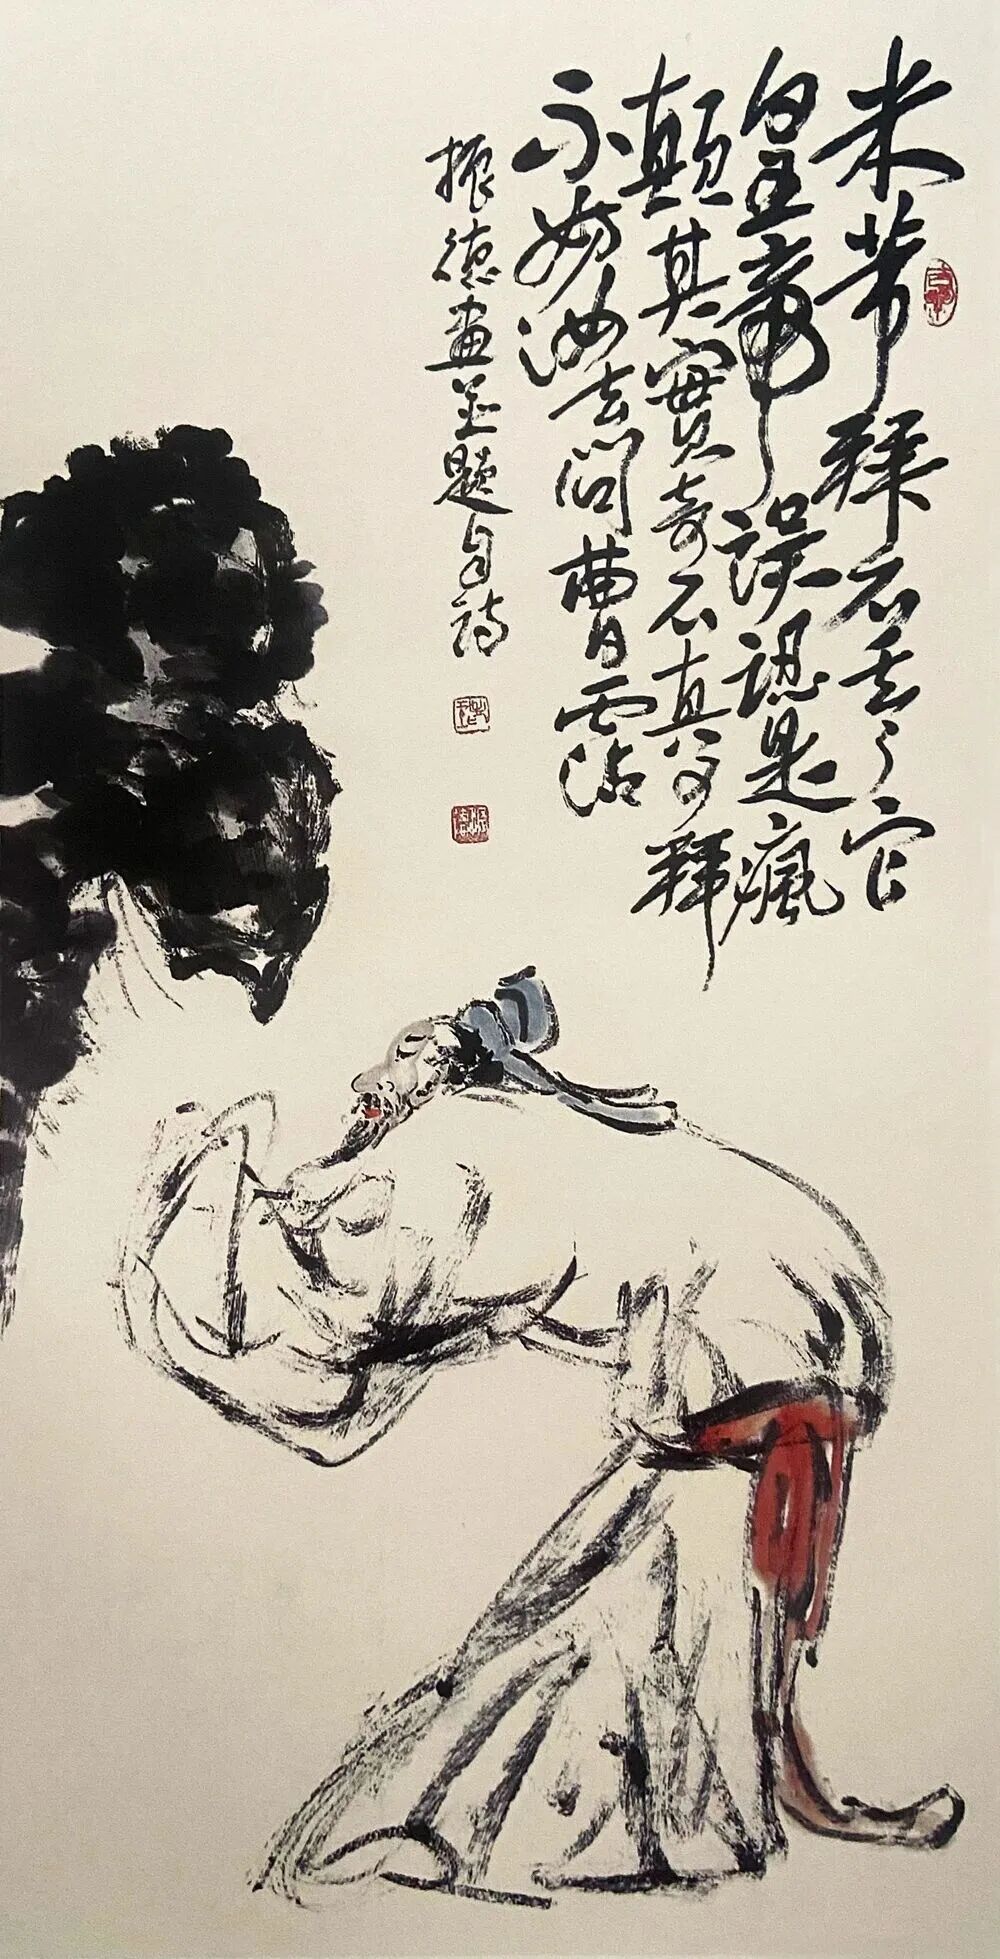 米芾拜石丢了官
皇帝误认是疯
颠其實奇石真可拜
不妨汝去问曹霑
振德画并题自诗